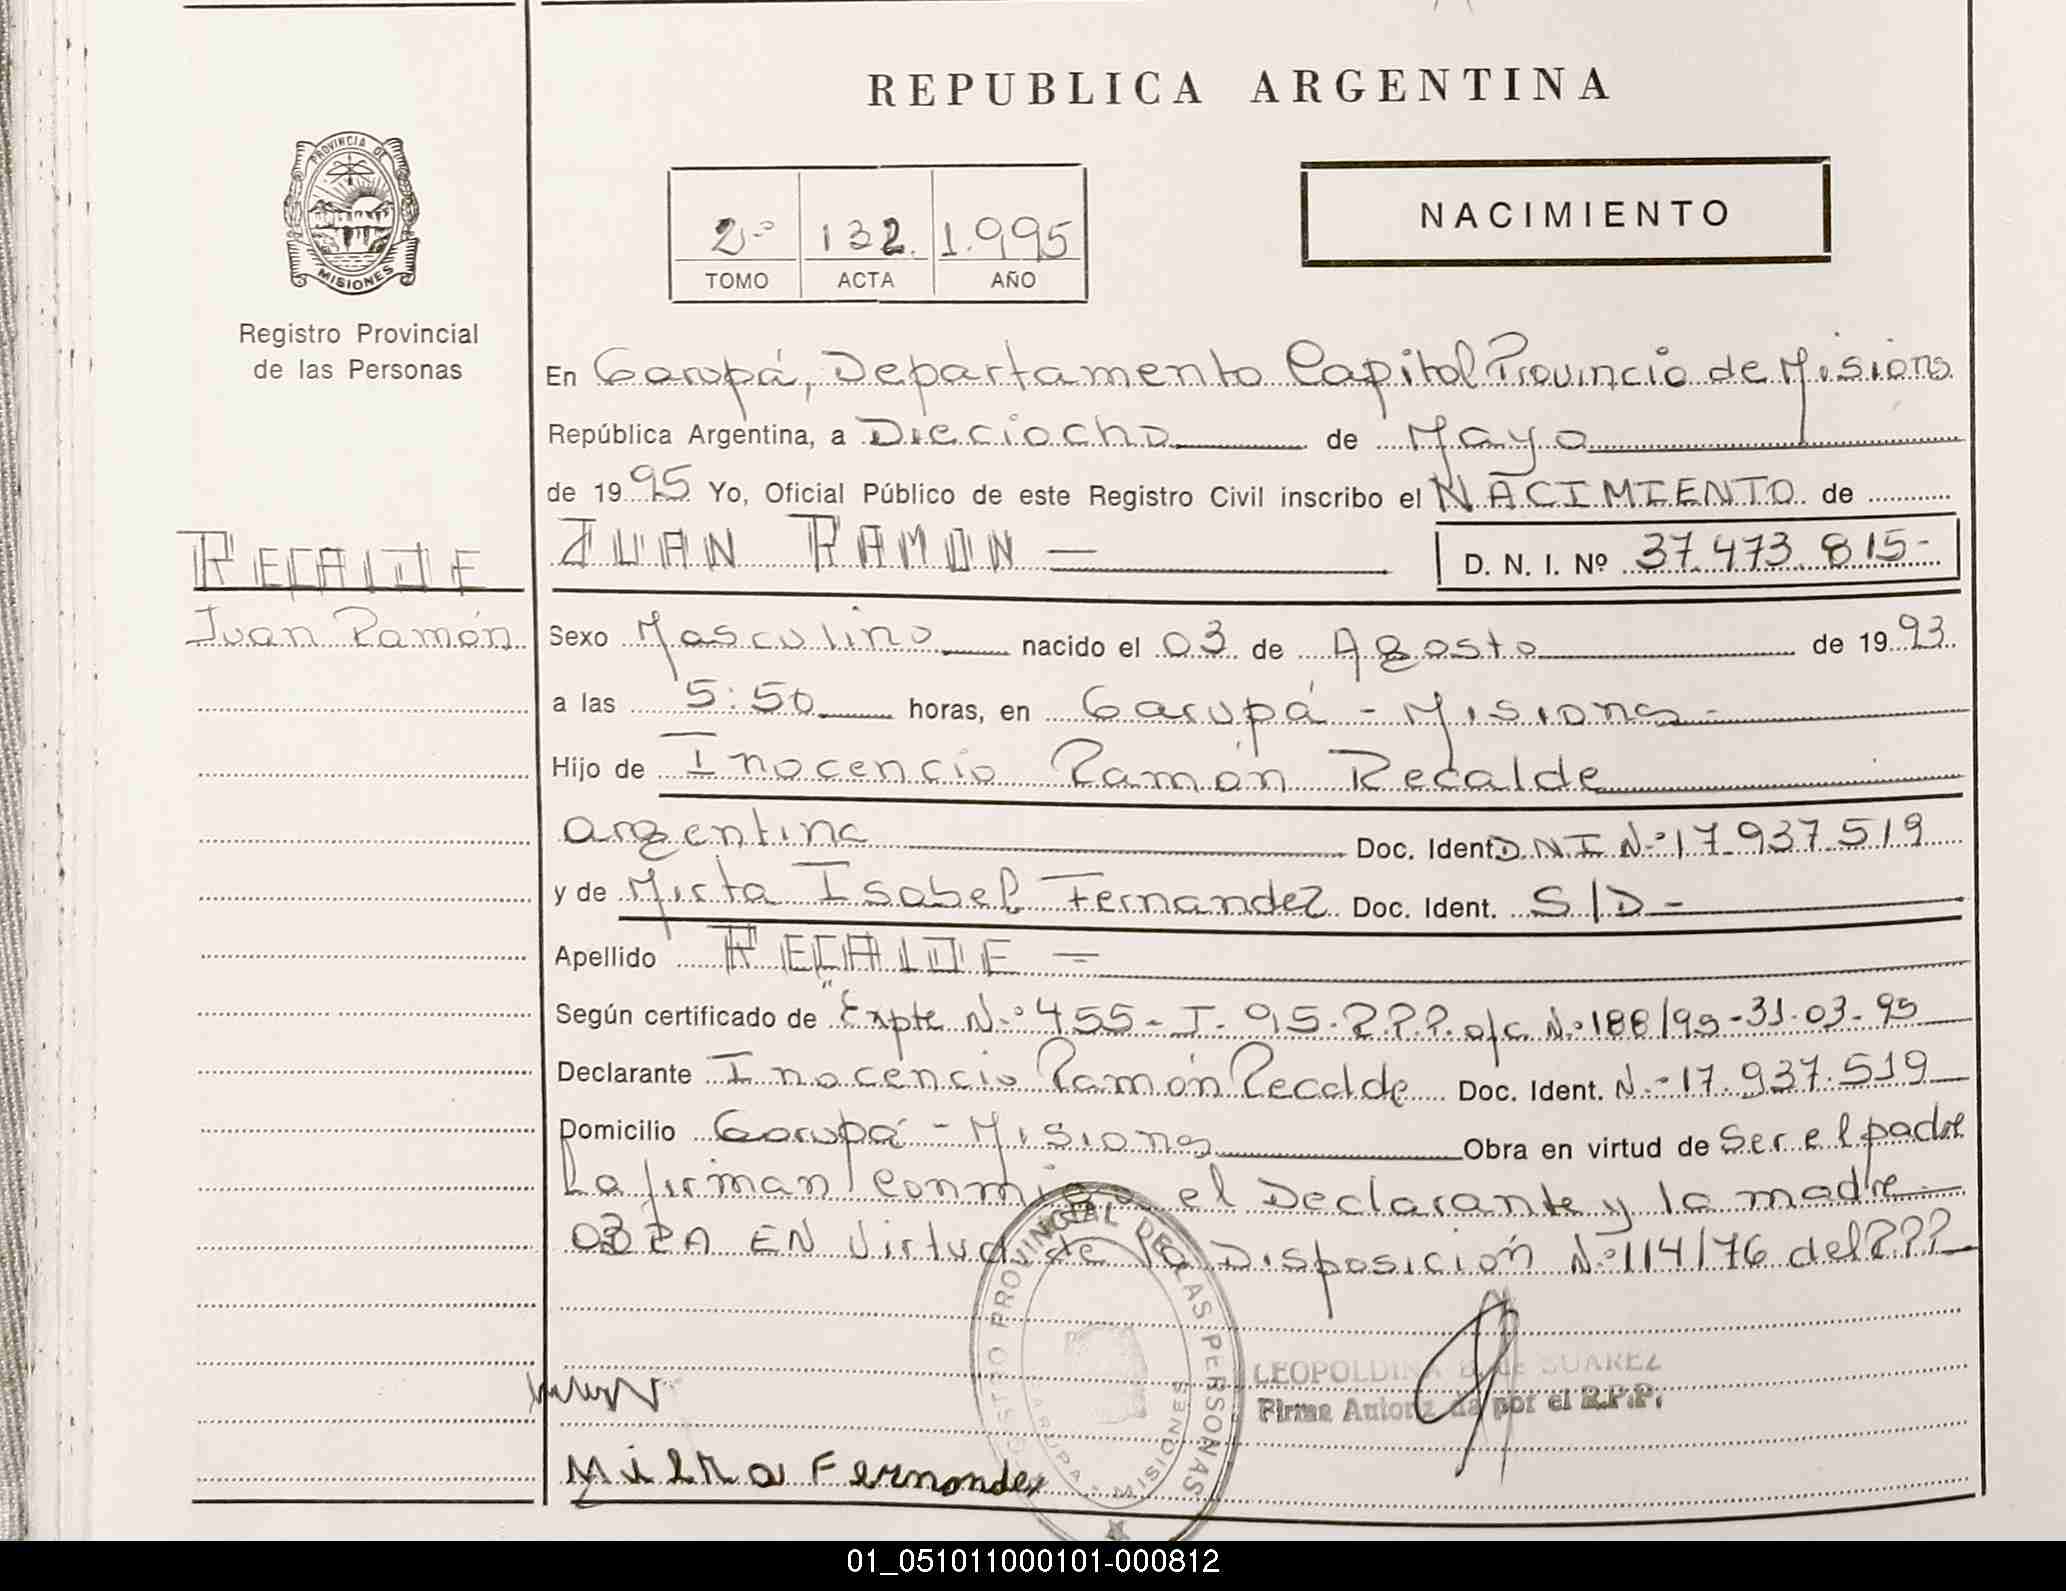 REPUBLICA ARGENTINA
PROVINCIA DE
MISIONES
Registro Provincial
de las Personas
2º
132.
1.995
TOMO
ACTA
AÑO
NACIMIENTO
En Garupá, Departamento Capital Provincia de Misiones
República Argentina, a Dieciocho de Mayo
de 1995 Yo, Oficial Público de este Registro Civil inscribo el NACIMIENTO de
RECALDE
JUAN RAMON
D. N. I. Nº 37.473.815-
Juan Ramón
Sexo Masculino nacido el 03 de Agosto de 1993
a las 5:50 horas, en Garupá - Misiones -
Hijo de Inocencio Ramón Recalde
argentina Doc. Ident. D.N.I Nº 17.937.519
y de Mirta Isabel Fernandez Doc. Ident. S/D -
Apellido RECALDE =
Según certificado de "Expte Nº 455-I-95-R.P.P. o/c. Nº 188/95-31-03-95
Declarante Inocencio Ramón Recalde Doc. Ident. N.- 17.937.519
Domicilio Garupá - Misiones Obra en virtud de Ser el padre
La firman conmigo el Declarante y la madre
OBRA EN Virtud de la Disposición Nº 114/76 del R.P.P
REGISTRO PROVINCIAL DE LAS PERSONAS
GARUPA - MISIONES
LEOPOLDINA B. de SUAREZ
Firma Autorizada por el R.P.P.
Milta Fernandez
01_051011000101-000812